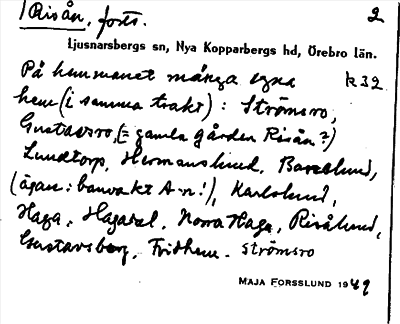 Risån, forts. 2
Ljusnarsbergs sn, Nya Kopparbergs hd, Örebro län.
På hemmanet många egna k32
hem (i samma trakt): Strömsro,
Gustavsro, (= gamla gården Risån?)
Lundtorp, Hermanslund, Barrlund,
(ägan: banvakt A-n!), Karlslund,
Haga, Hagadal, Norra Haga, Risålund,
Gustavsberg, Fridhem. Strömsro
MAJA FORSSLUND 1949